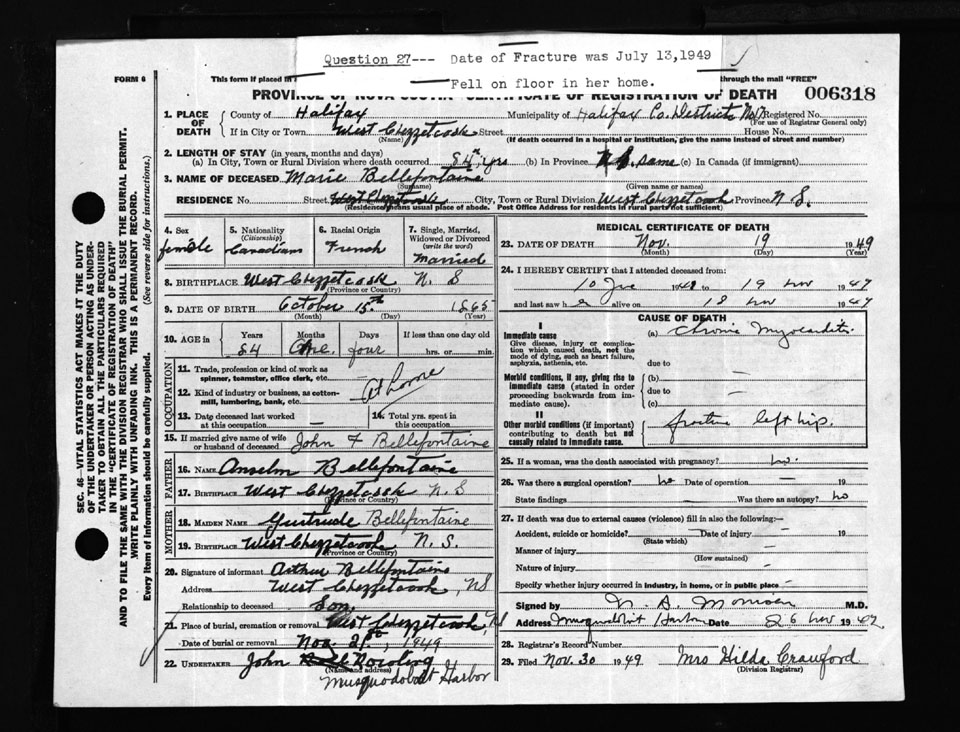 Question 27--- Date of Fracture was July 13,1949
Fell on floor in her home.
FORM 6
This form if placed in
through the mail "FREE"
PROVINCE OF NOVA SCOTIA CERTIFICATE OF REGISTRATION OF DEATH 006318
1. PLACE OF DEATH
County of Halifax Municipality of Halifax Co. District No. Registered No.
(For use of Registrar General only)
If in City or Town West Chezzetcook Street House No.
(If death occurred in a hospital or institution, give the name instead of street and number)
2. LENGTH OF STAY (in years, months and days)
(a) In City, Town or Rural Division where death occurred 84 yrs (b) In Province same (c) In Canada (if immigrant)
3. NAME OF DECEASED Marie Bellefontaine
(Surname) (Given name or names)
RESIDENCE No. Street West Chezzetcook City, Town or Rural Division West Chezzetcook Province N S.
(Residence means usual place of abode. Post Office Address for residents in rural parts not sufficient)
4. Sex
female
5. Nationality
(Citizenship)
Canadian
6. Racial Origin
French
7. Single, Married, Widowed or Divorced
(write the word)
Married
8. BIRTHPLACE West Chezzetcook N. S
(Province or Country)
9. DATE OF BIRTH October 15th 1865
(Month) (Day) (Year)
10. AGE in
Years Months Days If less than one day old
84 One four hrs. or min.
OCCUPATION
11. Trade, profession or kind of work as spinner, teamster, office clerk, etc.
At home
12. Kind of industry or business, as cotton-mill, lumbering, bank, etc.
13. Date deceased last worked at this occupation —
14. Total yrs. spent in this occupation
15. If married give name of wife or husband of deceased John F Bellefontaine
FATHER
16. NAME Anselm Bellefontaine
17. BIRTHPLACE West Chezzetcook N S
(Province or Country)
MOTHER
18. MAIDEN NAME Gertrude Bellefontaine
19. BIRTHPLACE West Chezzetcook N. S.
(Province or Country)
20. Signature of informant Arthur Bellefontaine
Address West Chezzetcook, NS
Relationship to deceased Son
21. Place of burial, cremation or removal West Chezzetcook, NS
Date of burial or removal Nov. 21st, 1949
22. UNDERTAKER John Rowling
(Name and address)
Musquodoboit Harbor
MEDICAL CERTIFICATE OF DEATH
23. DATE OF DEATH Nov. 19 1949
(Month) (Day) (Year)
24. I HEREBY CERTIFY that I attended deceased from:
10 19 to 19 Nov 1947
and last saw h alive on 18 Nov 1947
CAUSE OF DEATH
I
Immediate cause
Give disease, injury or complication which caused death, not the mode of dying, such as heart failure, asphyxia, asthenia, etc.
(a) Chronic Myocarditis
due to
Morbid conditions, if any, giving rise to immediate cause (stated in order proceeding backwards from immediate cause).
(b) —
due to —
(c)
II
Other morbid conditions (if important) contributing to death but not causally related to immediate cause.
fracture left hip.
25. If a woman, was the death associated with pregnancy? no.
26. Was there a surgical operation? no Date of operation — 19
State findings Was there an autopsy? no
27. If death was due to external causes (violence) fill in also the following:—
Accident, suicide or homicide? Date of injury — 19
(State which)
Manner of injury —
(How sustained)
Nature of injury —
Specify whether injury occurred in industry, in home, or in public place —
Signed by M.D.
Address Musquodoboit Harbor Date 26 Nov 19
28. Registrar's Record Number
29. Filed Nov. 30 1949 Mrs Hilda Crawford
(Division Registrar)
SEC. 46—VITAL STATISTICS ACT MAKES IT THE DUTY
OF THE UNDERTAKER OR PERSON ACTING AS UNDER-
TAKER TO OBTAIN ALL THE PARTICULARS REQUIRED
IN THE "CERTIFICATE OF REGISTRATION OF DEATH"
AND TO FILE THE SAME WITH THE DIVISION REGISTRAR WHO SHALL ISSUE THE BURIAL PERMIT.
WRITE PLAINLY WITH UNFADING INK. THIS IS A PERMANENT RECORD.
Every item of information should be carefully supplied. (See reverse side for instructions.)